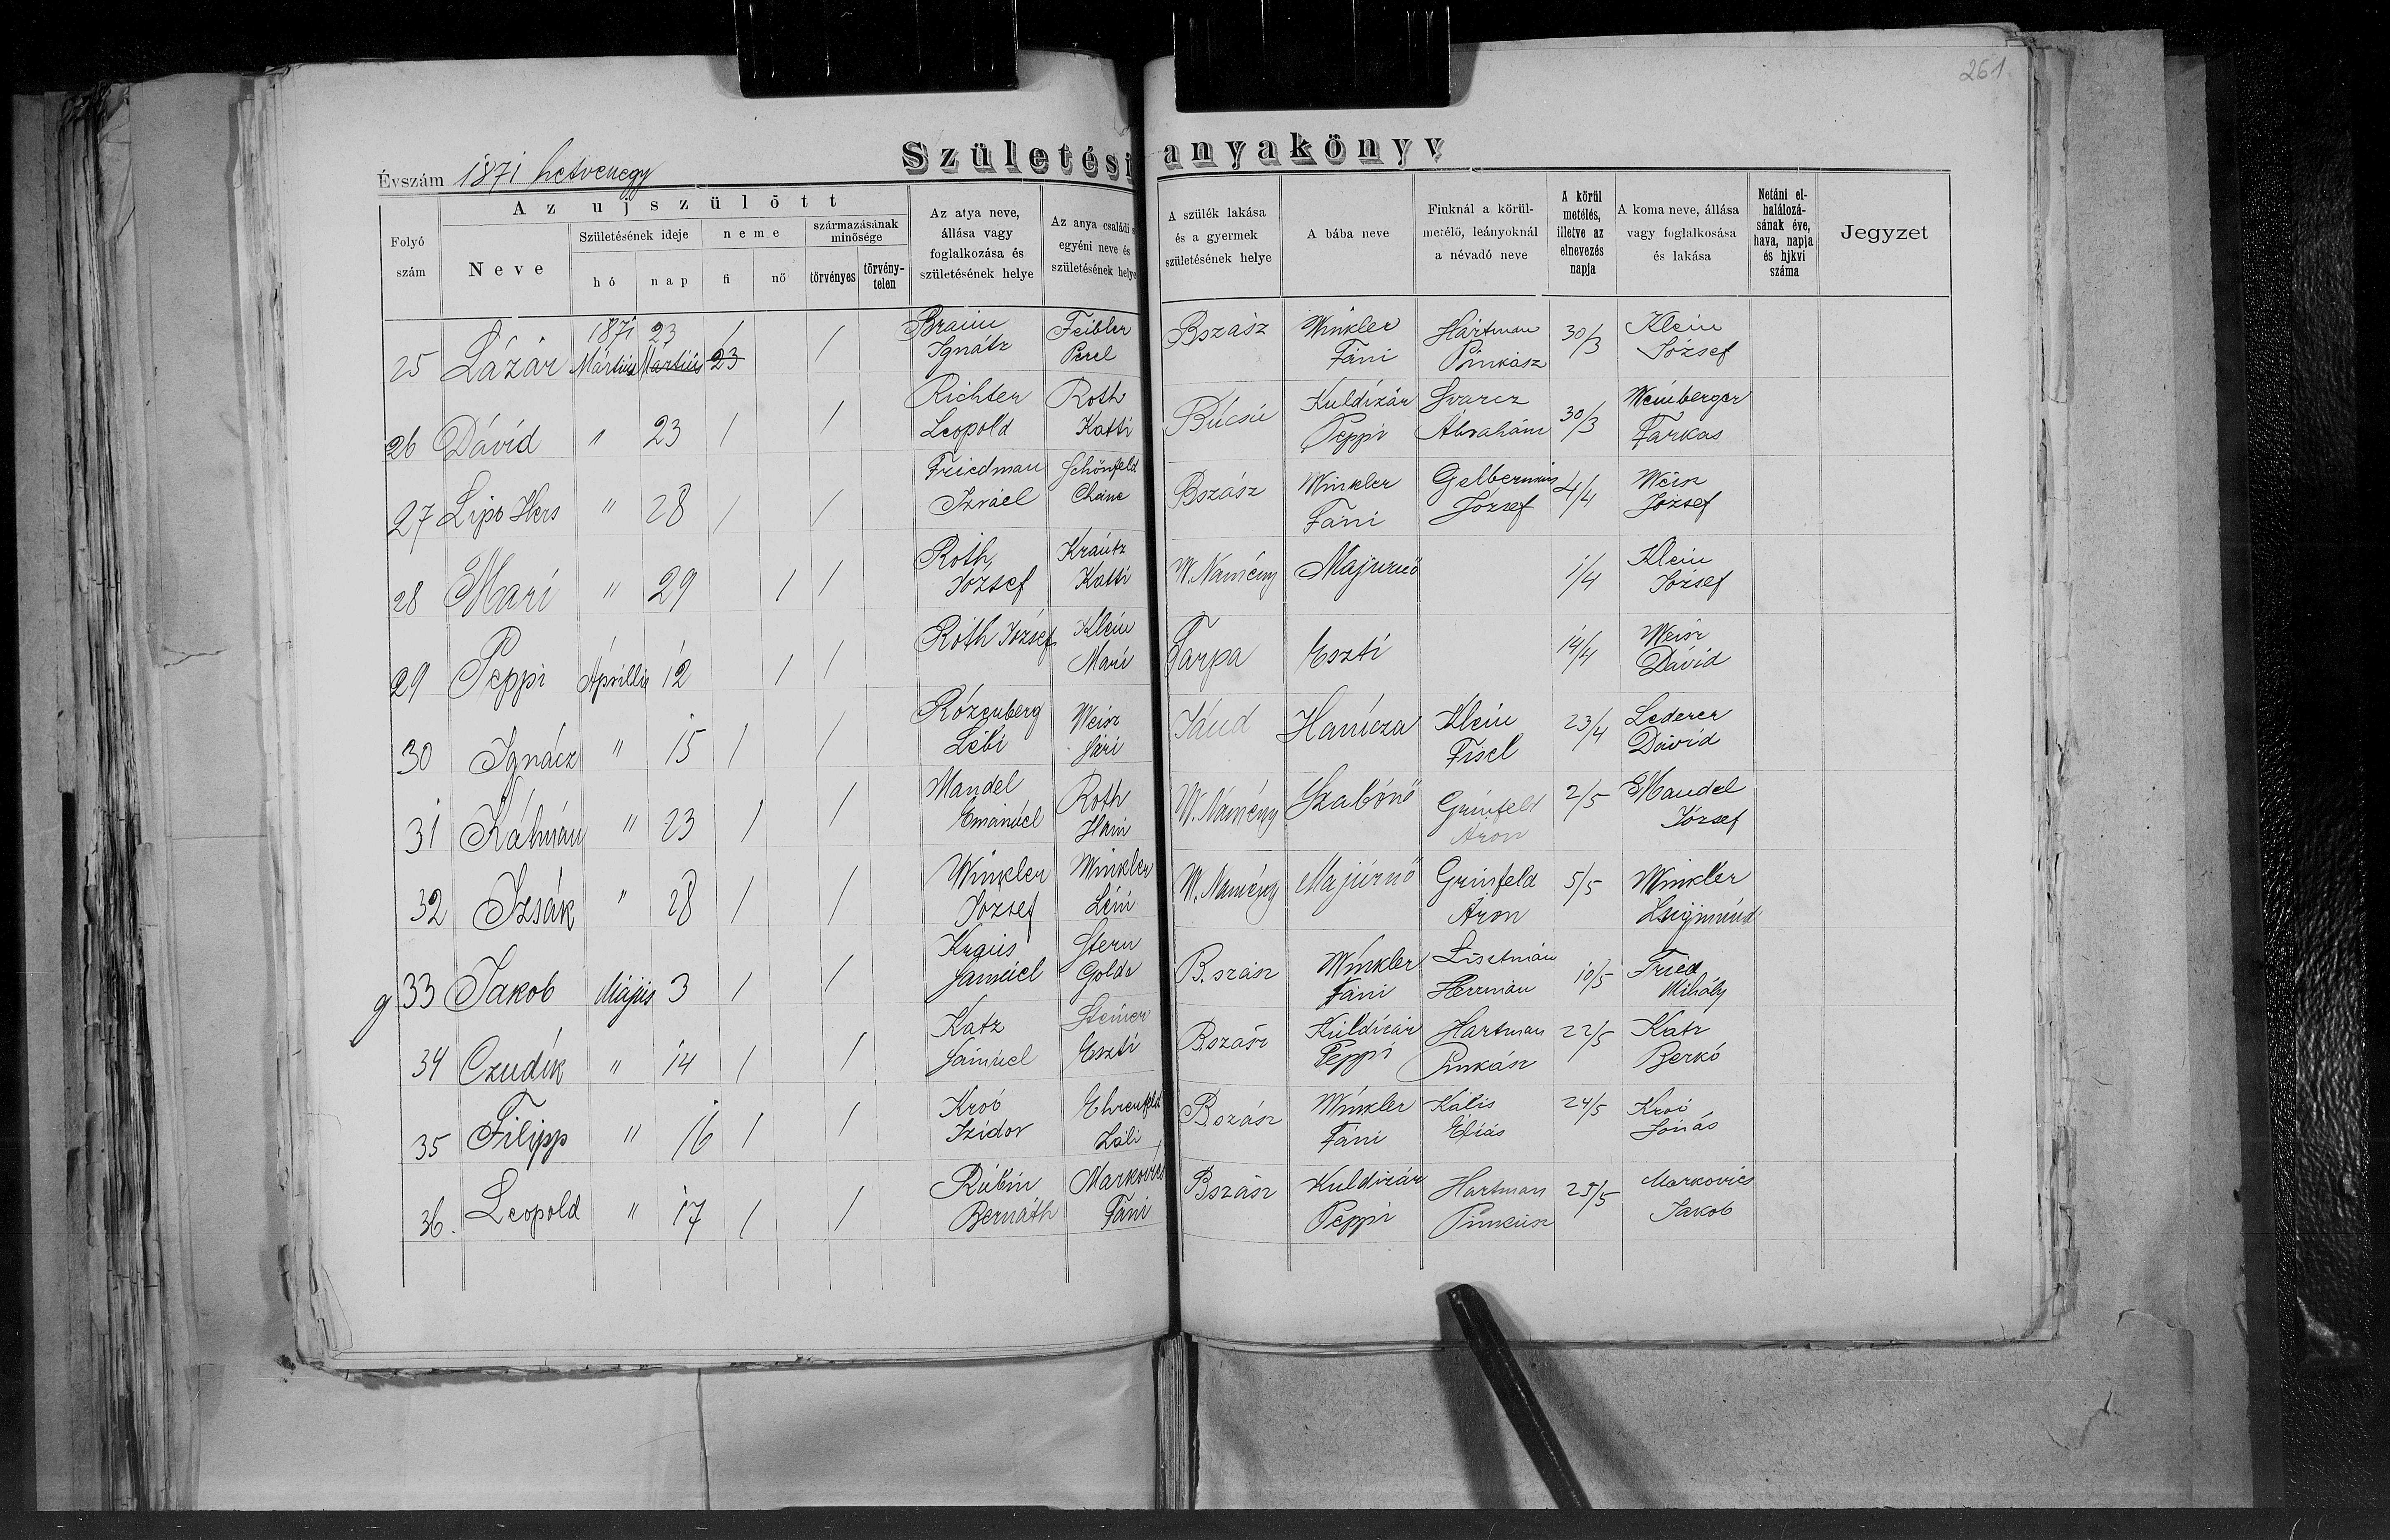 261
Születési anyakönyv
Évszám 1871 hetvenegy
Folyó szám
Az ujszülött
Neve
Születésének ideje
hó
nap
neme
fi
nő
származásának minősége
törvényes
törvény-telen
Az atya neve, állása vagy foglalkozása és születésének helye
Az anya családi egyéni neve és születésének helye
A szülék lakása és a gyermek születésének helye
A bába neve
Fiuknál a körül-metélő, leányoknál a névadó neve
A körül metélés, illetve az elnevezés napja
A koma neve, állása vagy foglalkosása és lakása
Netáni el-halálozá-sának éve, hava, napja és hjkvi száma
Jegyzet
25 Lázár 1871 Mártius 23 Martius 23 / / Braun Ignátz Feibler Perel Bszász Winkler Fáni Hartman Pinkász 30/3 Klein József
26 Dávid " 23 / / Richter Leopold Roth Katti Búcsú Kuldizár Peppi Svarcz Ábrahám 30/3 Weinberger Farkas
27 Lipo Hers " 28 / / Friedman Izráel Schönfeld Bszász Winkler Fáni József 4/4 Weisz József
28 Mari " 29 / / Roth József Krautz Katti W. Namény Majurnő 1/4 Klein József
29 Peppi Áprillis 12 / / Roth József Klein Mari Tarpa Eszti 14/4 Weisz Dávid
30 Ignácz " 15 / / Rózenberg Lébi Weisz Sári Jánd Hanicza Klein Fisel 23/4 Lederer Dávid
31 Kálmán " 23 / / Mandel Emánúel Roth Hani W. Namény Szabónő Grünfeld Aron 2/5 Mandel József
32 Izsák " 28 / / Winkler József Winkler Léni W. Namény Majúrnő Grünfeld Aron 5/5 Winkler Zsigmúnd
g 33 Jakob Május 3 / / Kraus Samúel Stern Golda B. szász Winkler Fáni Herrman 10/5 Fried Mihály
34 Czudik " 14 / / Katz Sámúel Steiner Eszti Bszász Kuldizár Peppi Hartman Pinkász 22/5 Katz Berkó
35 Filipp " 16 / / Izidor Ehrenfeld Záli Bszász Winkler Fáni Kális Éliás 24/5 Jónás
36. Leopold " 17 / / Rúbin Bernáth Markovics Fáni Bszász Kuldizár Peppi Hartman 25/5 Markovics Jakob